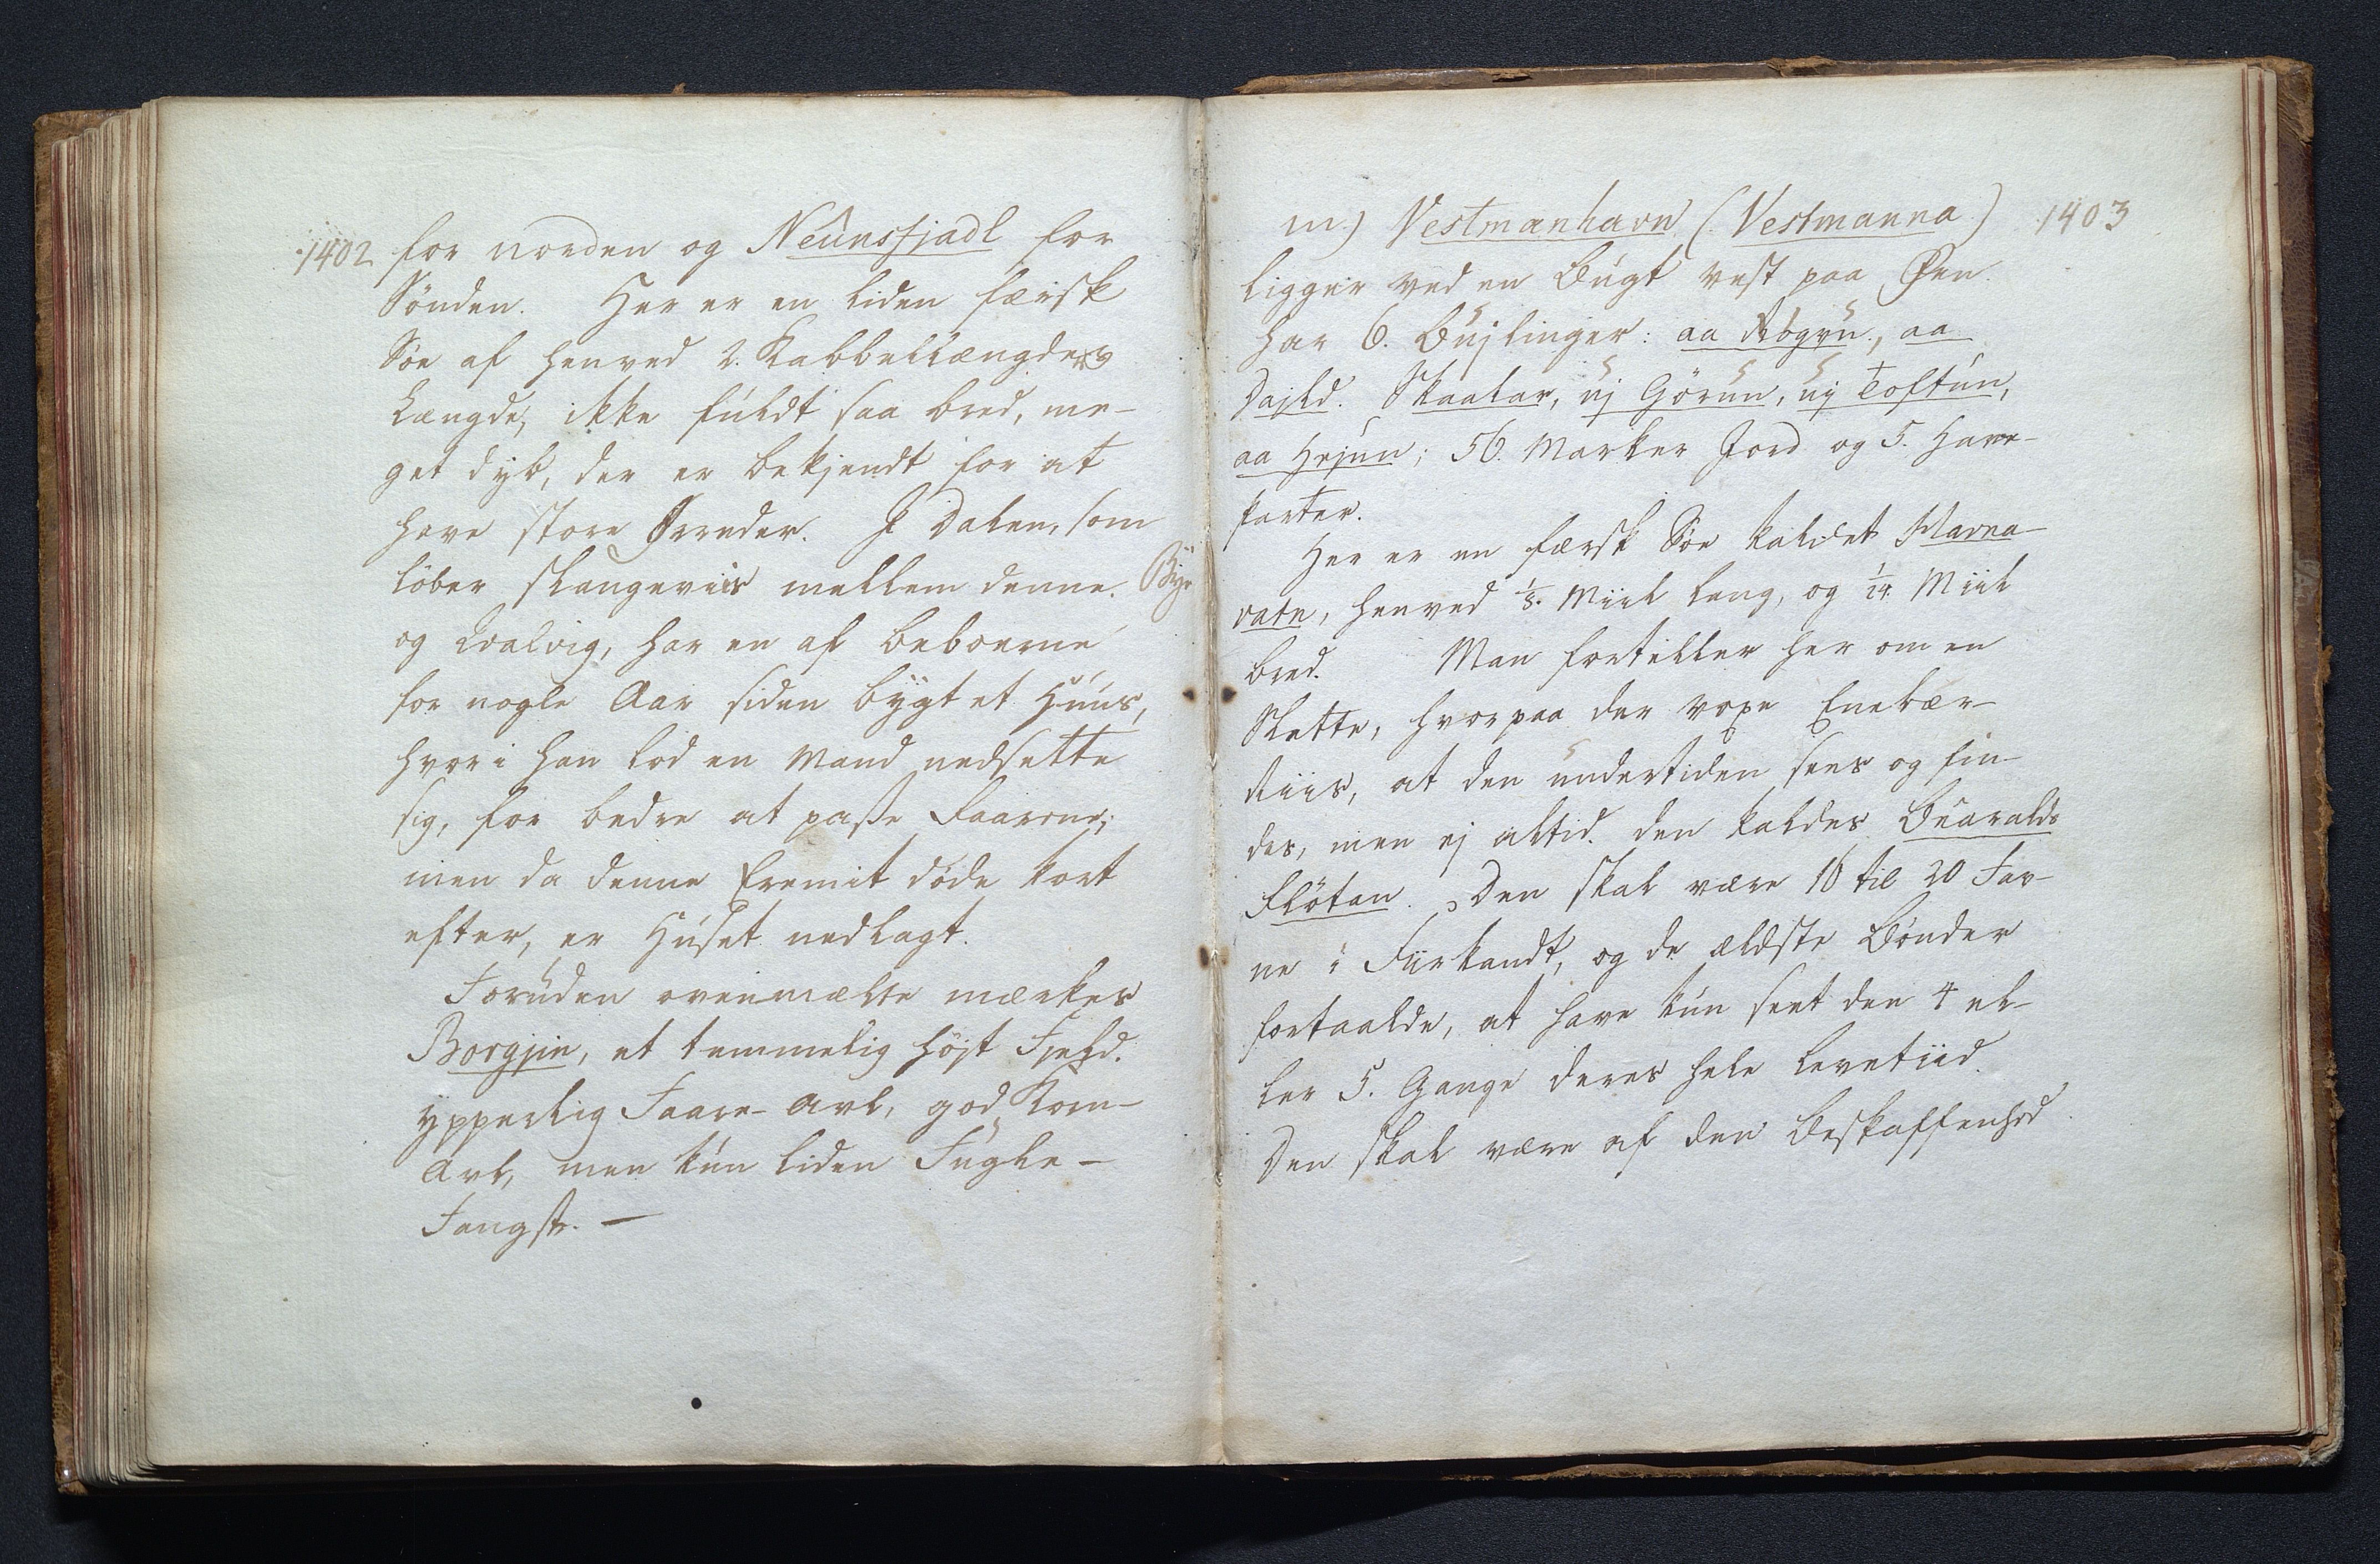 1402 for norden og Neunsfjadl for
Sönden. Her er en liden færsk
Söe af henved 2. Kabbellængders
Længde, ikke fuldt saa bred, me-
get dyb, der er bekjendt for at
have store Ørreder. I Dalen, som
löber slangeviis mellem denne Bÿe
og Qvalvig, har en af beboerne
for nogle Aar siden bÿgt et Huus,
hvori han lod en Mand nedsette
sig, for bedre at passe Faarene;
men da denne Eremit döde kort
efter, er Huset nedlagt.
Foruden ovenmælte mærkes
Borgjin, et temmelig höjt Fjeld.
ÿpperlig Faare-Avl, god Korn-
Avl, men kun liden Fugle-
Fangst. —
m) Vestmanhavn (Vestmanna) 1403
ligger ved en Bugt vest paa Øen
har 6. Bujlinger: aa Rógvu, aa
Dajld. Skaalar, uj Görun, uj Toftun,
aa Hejun; 56. Marker Jord og 5. Have-
parter.
Her er en færsk Söe kaldet Mavna-
vatn, henved 1/8. Miil lang, og 1/24. Miil
bred. Man fortæller her om en
Slette, hvorpaa der voxe Enebær-
Riis, at den undertiden sees og fin-
des, men ej altid. den kaldes Buaralds
Flötan. Den skal være 16 til 20 Fav-
ne i Fiirkandt, og de ældste Bönder
fortaalde, at have kun seet den 4 el-
ler 5. Gange deres hele Levetiid.
Den skal være af den Beskaffenhed